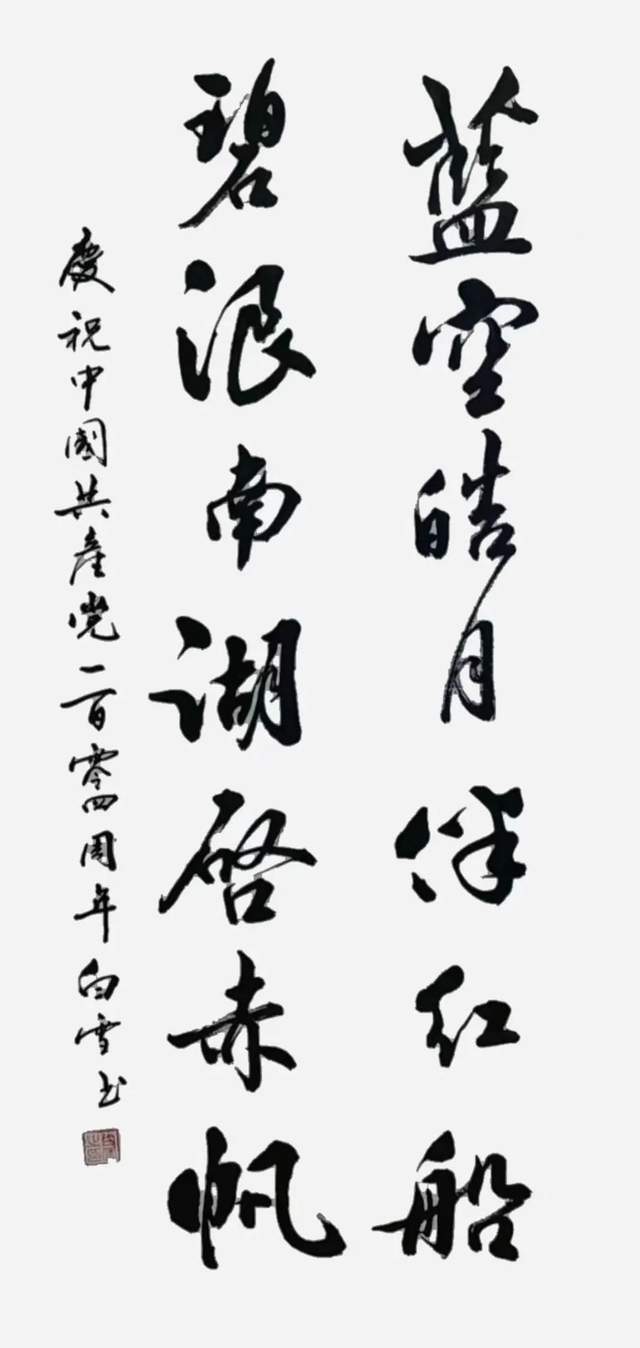 藍空皓月伴红船
碧浪南湖啓赤帆
慶祝中國共産党一百零四周年白雪书